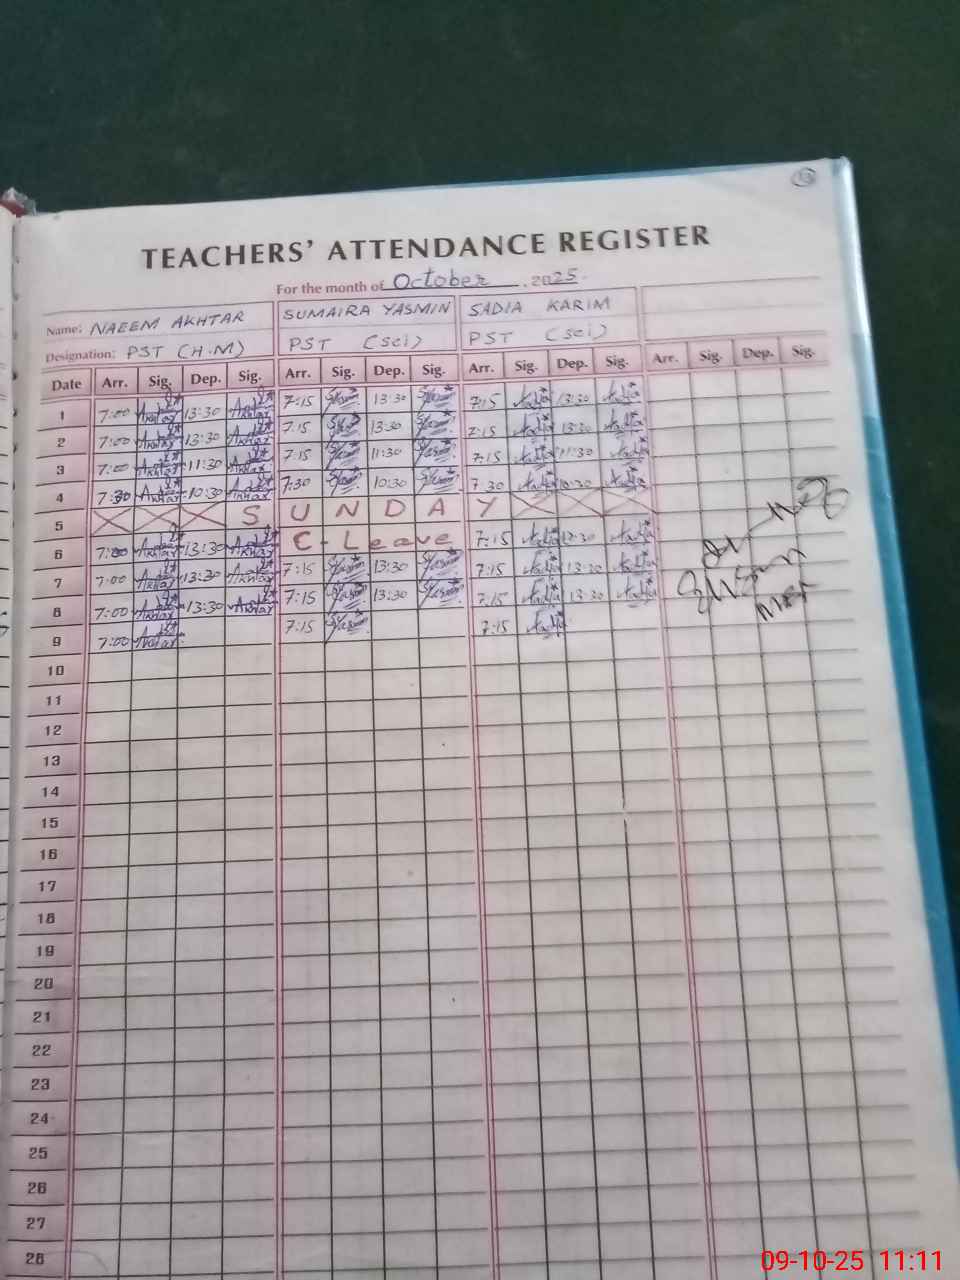 13
TEACHERS' ATTENDANCE REGISTER
For the month of October . 2025.
Name: NAEEM AKHTAR SUMAIRA YASMIN SADIA KARIM
Designation: PST (H.M) PST (Sci) PST (Sci)
Date Arr. Sig. Dep. Sig. Arr. Sig. Dep. Sig. Arr. Sig. Dep. Sig. Arr. Sig. Dep. Sig.
1 7:00 Akhtar 13:30 Akhtar 7:15 Yasmin 13:30 Yasmin 7:15 Sadia 13:30 Sadia
2 7:00 Akhtar 13:30 Akhtar 7:15 Yasmin 13:30 Yasmin 7:15 Sadia 13:30 Sadia
3 7:00 Akhtar 11:30 Akhtar 7:15 Yasmin 11:30 Yasmin 7:15 Sadia 11:30 Sadia
4 7:30 Akhtar 10:30 Akhtar 7:30 Yasmin 10:30 Yasmin 7:30 Sadia 10:30 Sadia
5 SUNDAY
6 7:00 Akhtar 13:30 Akhtar C-Leave 7:15 Sadia 13:30 Sadia
7 7:00 Akhtar 13:30 Akhtar 7:15 Yasmin 13:30 Yasmin 7:15 Sadia 13:30 Sadia
8 7:00 Akhtar 13:30 Akhtar 7:15 Yasmin 13:30 Yasmin 7:15 Sadia 13:30 Sadia
9 7:00 Akhtar 7:15 Yasmin 7:15 Sadia
10
11
12
13
14
15
16
17
18
19
20
21
22
23
24
25
26
27
28
09-10-25 11:11